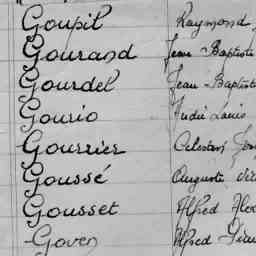 Goupil Raymond
Gourand Jean-Baptiste
Gourdel Jean-Baptiste
Gourio Louis
Gourrier Célestin
Goussé Auguste
Gousset Alfred
Goven Alfred